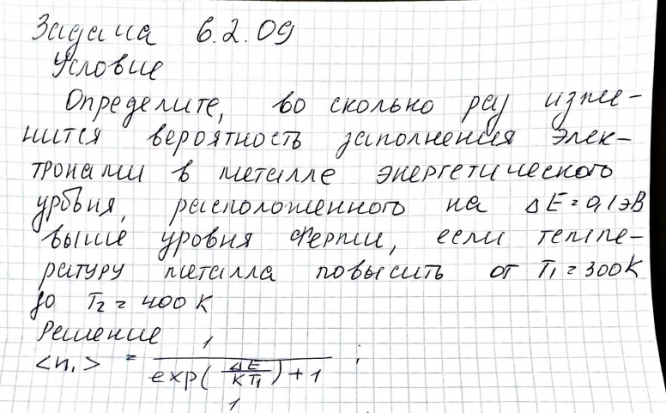 Задача 6.2.09
Условие
Определите, во сколько раз изме-
нится вероятность заполнения элек-
тронами в металле энергетического
уровня, расположенного на ΔE = 0,1 эВ
выше уровня Ферми, если темпе-
ратуру металла повысить от T₁ = 300 К
до T₂ = 400 К
Решение
<n₁> = 1 / (exp(ΔE / KT₁) + 1) ;
1